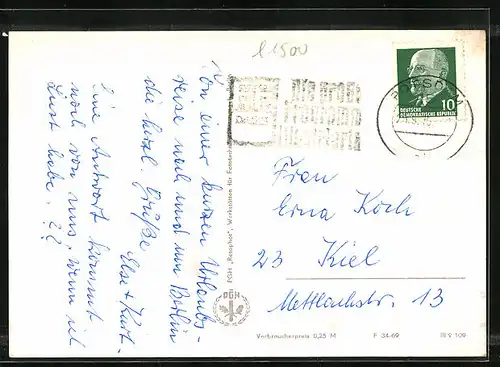 l 1500
Von einer kurzen Urlaubs-
reise nach und um Berlin
die herzl. Grüße
Else + Kurt.
Eine Antwort kommt
noch von uns, wenn ich
Lust habe. ??
PGH „Rotophot“, Werkstätten für
PGH
DEUTSCHE
DEMOKRATISCHE REPUBLIK
10
Frau
Erna Koch
23 Kiel
Mettlachstr. 13
Verbraucherpreis 0,25 M
F 34-69
III 9 109